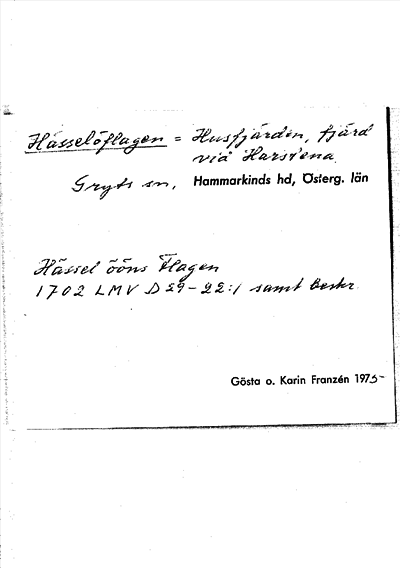 Hässelöflagen = Husfjärden, fjärd
vid Harstena
Gryts sn, Hammarkinds hd, Österg. län
Hässel ööns Flagen
1702 LMV D 29-22:1 samt beskr.
Gösta o. Karin Franzén 1975